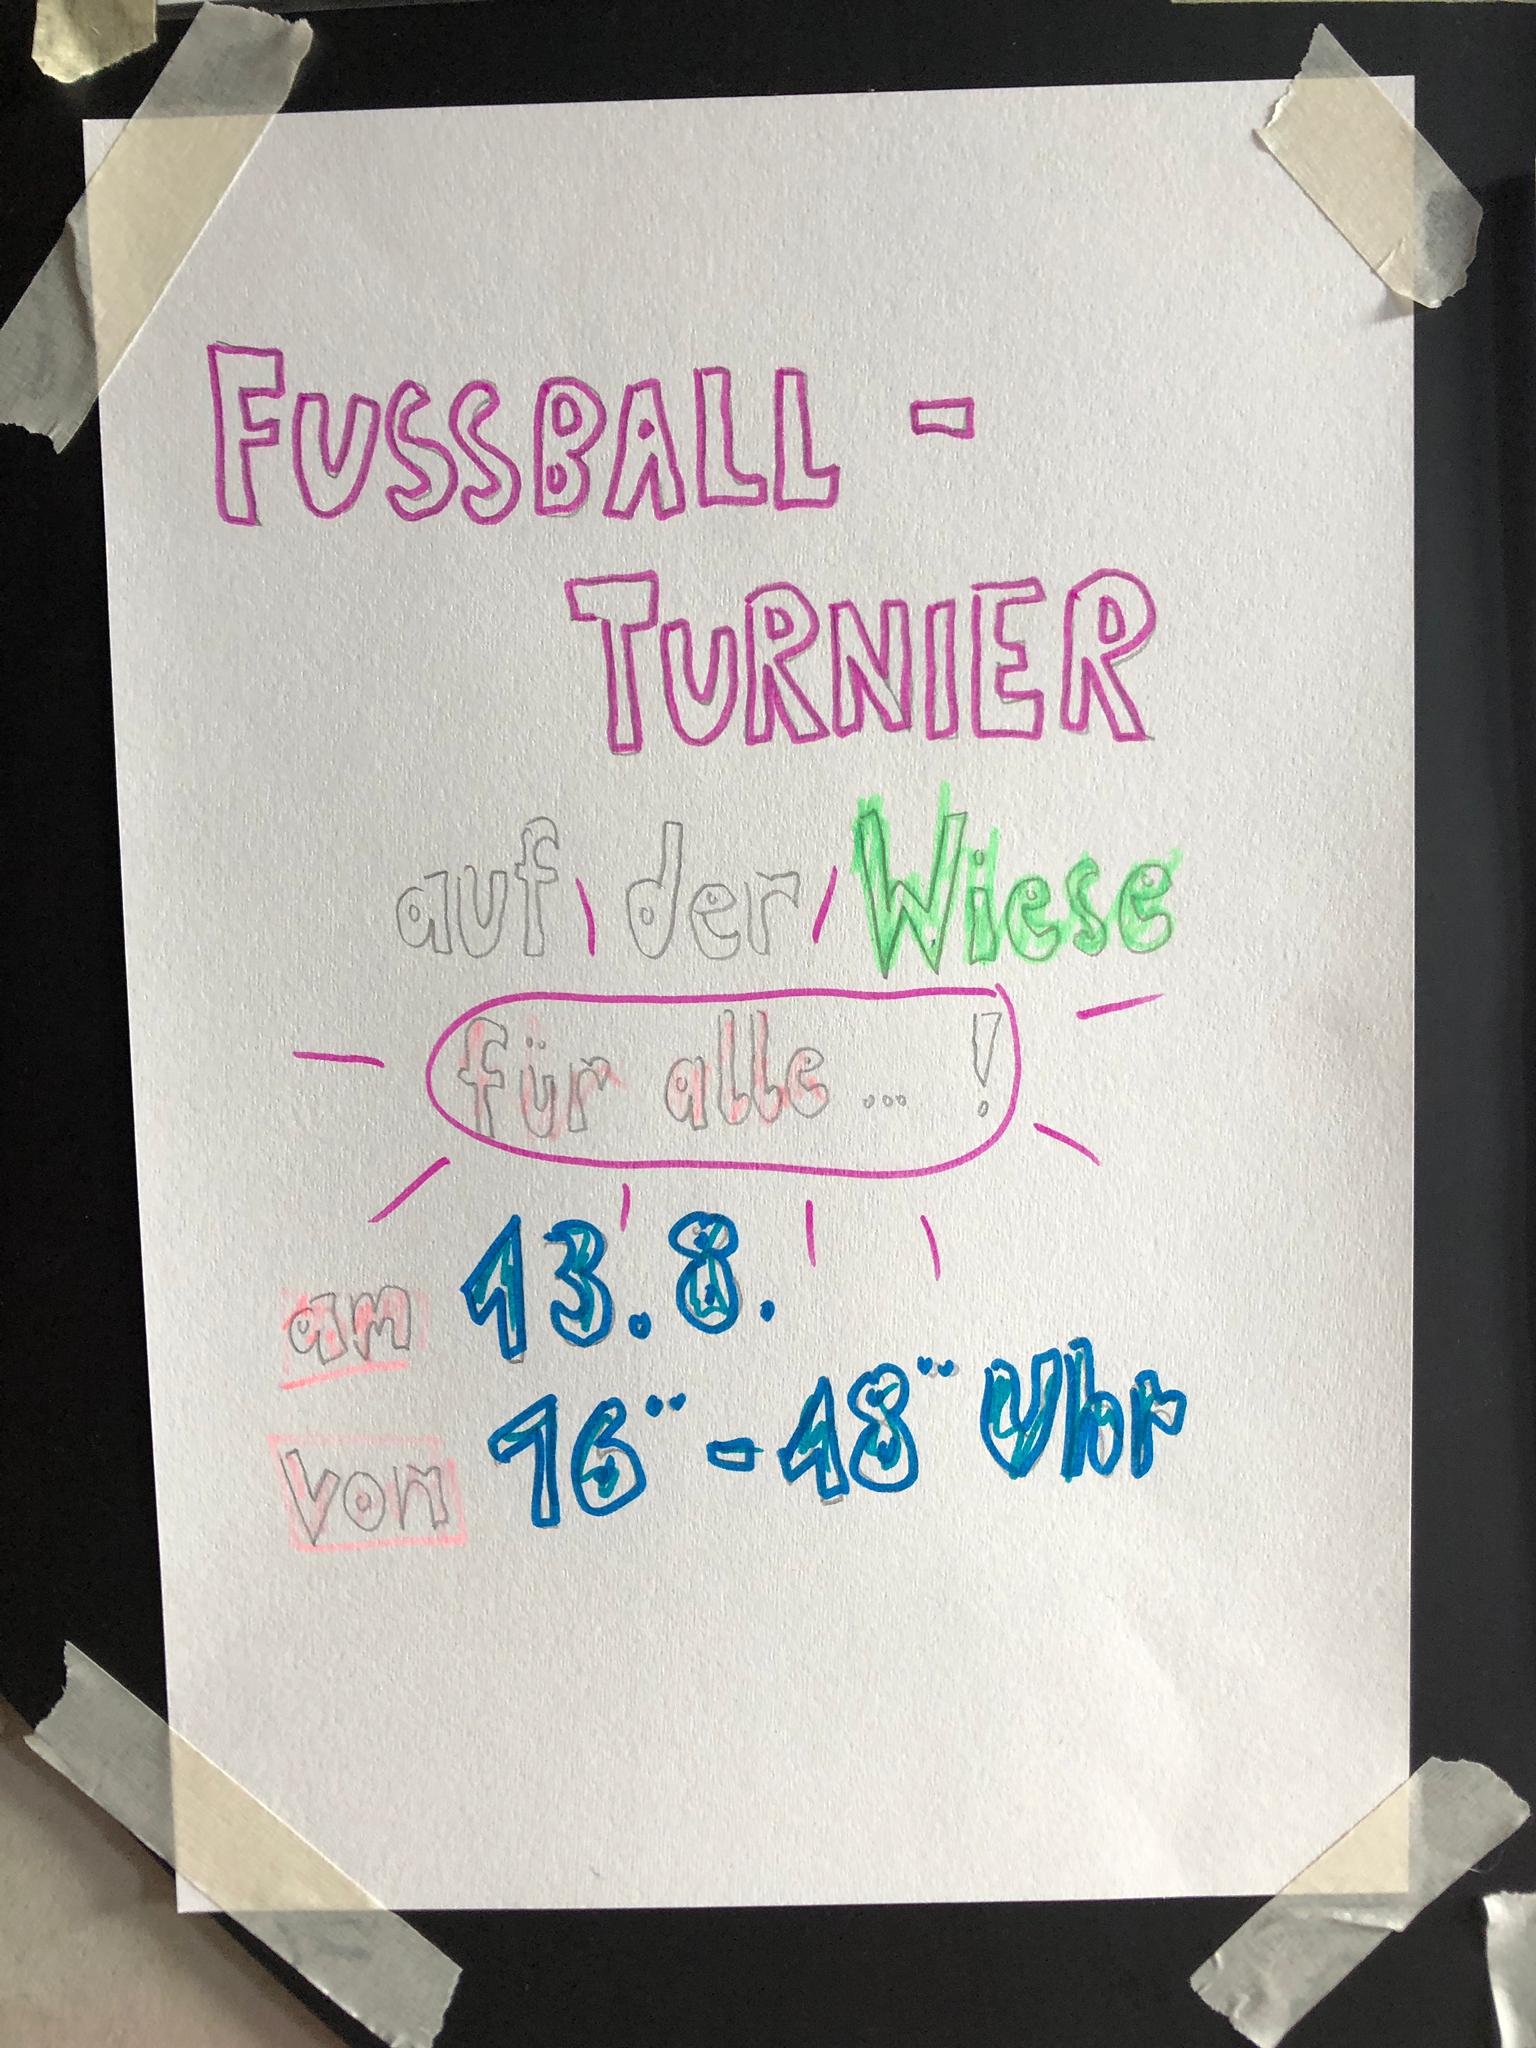 FUSSBALL -
TURNIER
auf der Wiese
für alle ... !
am 13.8.
von 16¨ - 18¨ Uhr